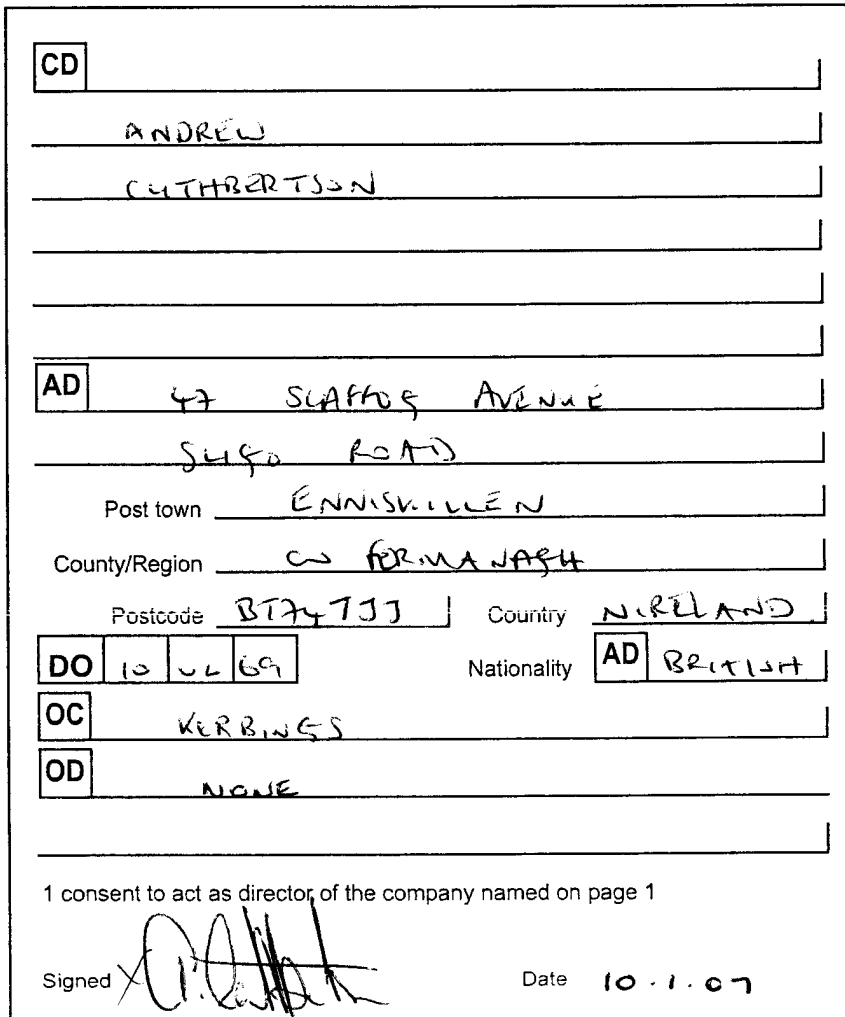 CD
ANDREW
CUTHBERTSON
AD 47 SLAFFOG AVENUE
SLIGO ROAD
Post town ENNISKILLEN
County/Region CO FERMANAGH
Postcode BT74 7JJ Country N.IRELAND
DO 10 JUL 69 Nationality AD BRITISH
OC KERBINGS
OD NONE
1 consent to act as director of the company named on page 1
Signed X Date 10.1.07